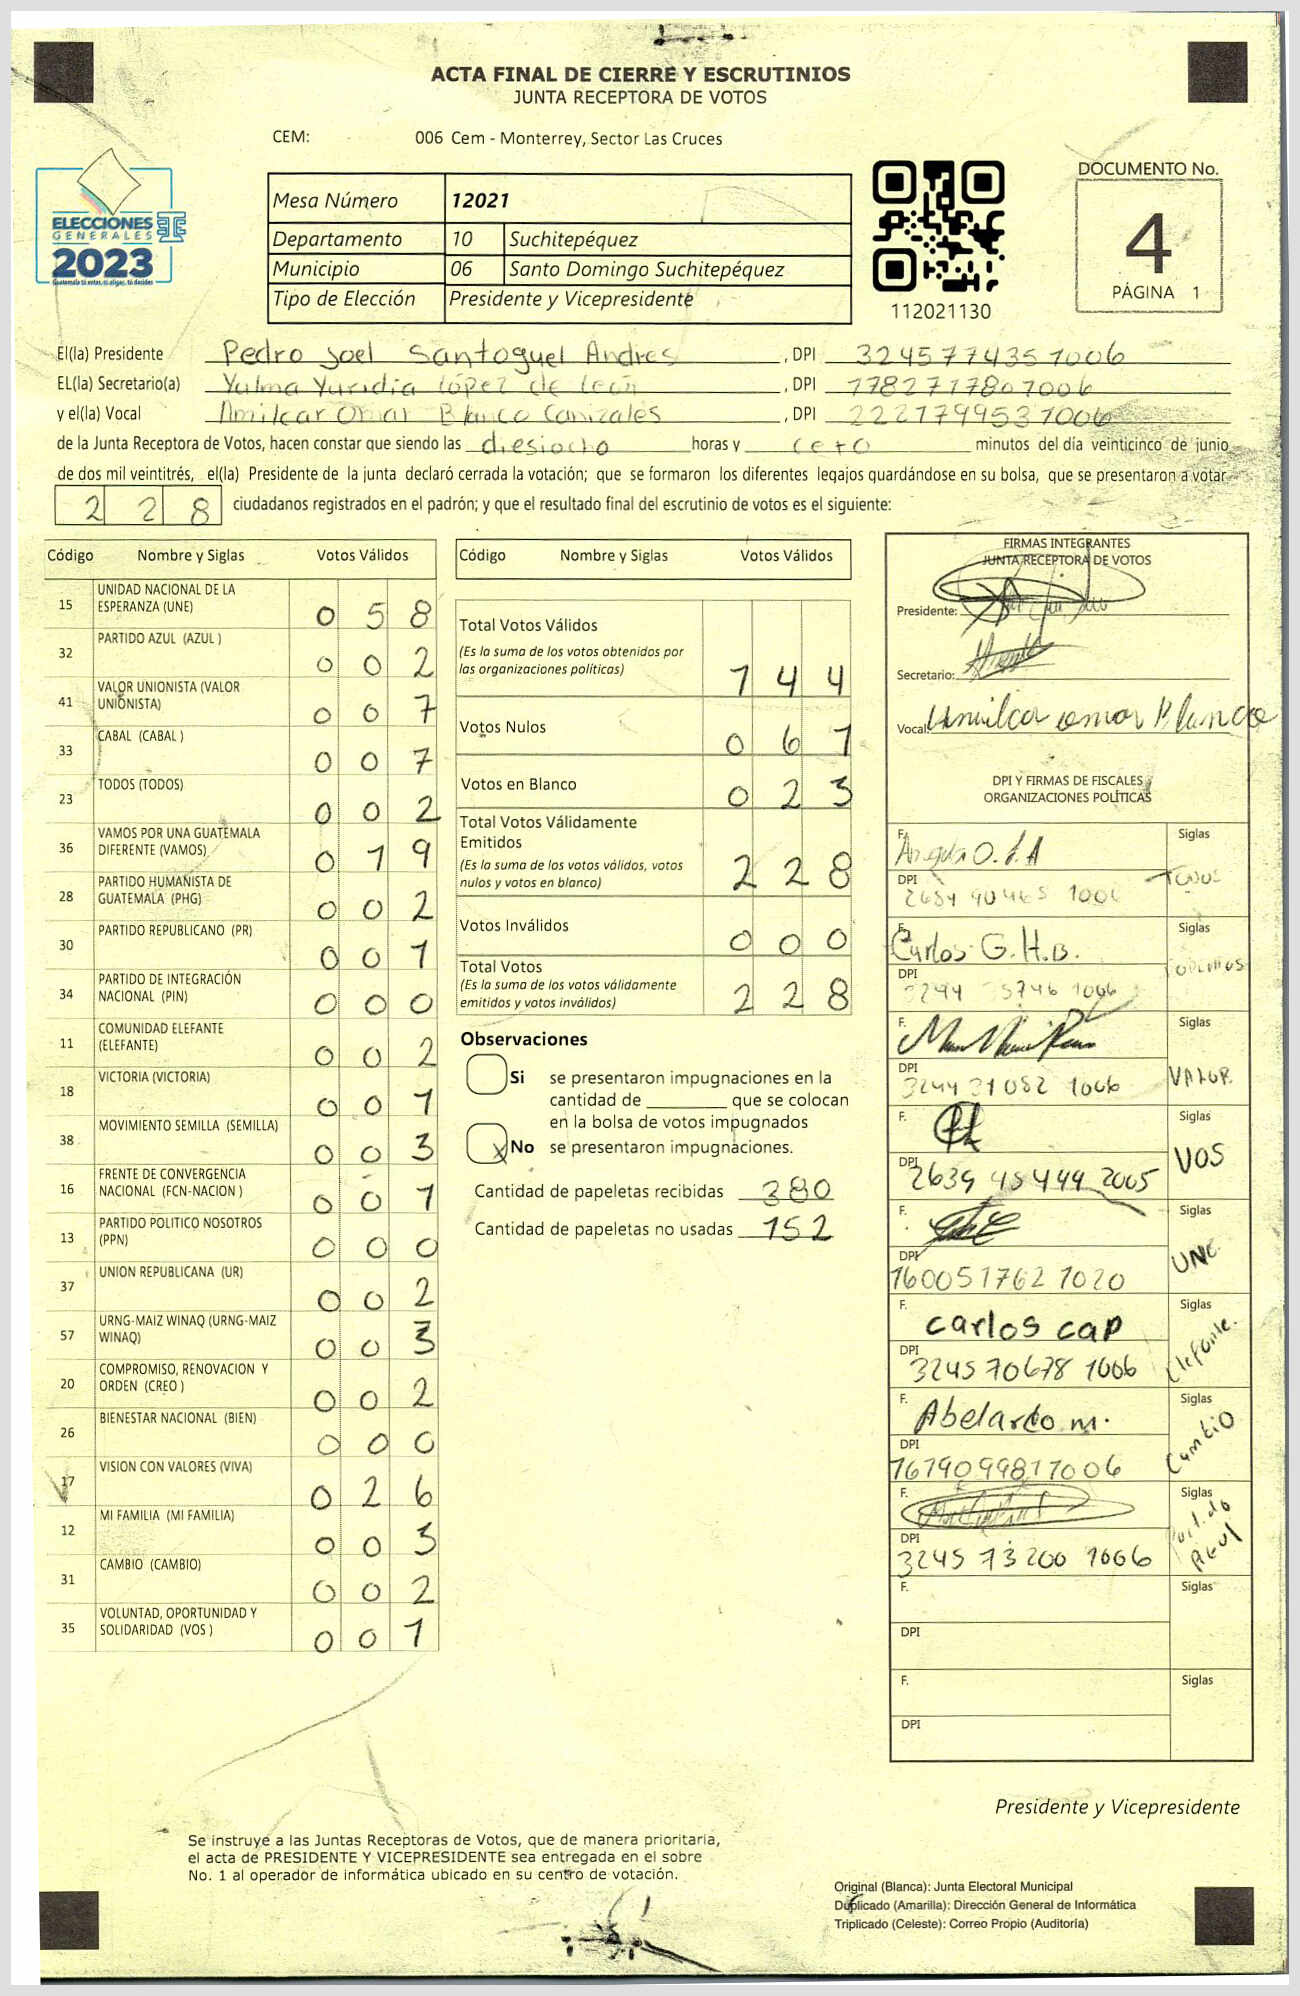 ACTA FINAL DE CIERRE Y ESCRUTINIOS
JUNTA RECEPTORA DE VOTOS
CEM: 006 Cem - Monterrey, Sector Las Cruces
ELECCIONES
GENERALES
2023
Guatemala tú votas, tú eliges, tú decides
Mesa Número 12021
Departamento 10 Suchitepéquez
Municipio 06 Santo Domingo Suchitepéquez
Tipo de Elección Presidente y Vicepresidente
112021130
DOCUMENTO No.
4
PÁGINA 1
El(la) Presidente Pedro Joel Santoguel Andres, DPI 3245774351006
EL(la) Secretario(a) Yulma Yuridia López de León, DPI 1782717801006
y el(la) Vocal Amilcar Omar Blanco Canizales, DPI 2221799531006
de la Junta Receptora de Votos, hacen constar que siendo las diesiocho horas y cero minutos del día veinticinco de junio
de dos mil veintitrés, el(la) Presidente de la junta declaró cerrada la votación; que se formaron los diferentes legajos guardándose en su bolsa, que se presentaron a votar
228 ciudadanos registrados en el padrón; y que el resultado final del escrutinio de votos es el siguiente:
Código Nombre y Siglas Votos Válidos
15 UNIDAD NACIONAL DE LA ESPERANZA (UNE) 058
32 PARTIDO AZUL (AZUL ) 002
41 VALOR UNIONISTA (VALOR UNIONISTA) 007
33 CABAL (CABAL ) 007
23 TODOS (TODOS) 002
36 VAMOS POR UNA GUATEMALA DIFERENTE (VAMOS) 019
28 PARTIDO HUMANISTA DE GUATEMALA (PHG) 002
30 PARTIDO REPUBLICANO (PR) 001
34 PARTIDO DE INTEGRACIÓN NACIONAL (PIN) 000
11 COMUNIDAD ELEFANTE (ELEFANTE) 002
18 VICTORIA (VICTORIA) 001
38 MOVIMIENTO SEMILLA (SEMILLA) 003
16 FRENTE DE CONVERGENCIA NACIONAL (FCN-NACION ) 001
13 PARTIDO POLITICO NOSOTROS (PPN) 000
37 UNION REPUBLICANA (UR) 002
57 URNG-MAIZ WINAQ (URNG-MAIZ WINAQ) 003
20 COMPROMISO, RENOVACION Y ORDEN (CREO ) 002
26 BIENESTAR NACIONAL (BIEN) 000
17 VISION CON VALORES (VIVA) 026
12 MI FAMILIA (MI FAMILIA) 003
31 CAMBIO (CAMBIO) 002
35 VOLUNTAD, OPORTUNIDAD Y SOLIDARIDAD (VOS ) 001
Código Nombre y Siglas Votos Válidos
Total Votos Válidos
(Es la suma de los votos obtenidos por
las organizaciones políticas) 144
Votos Nulos 061
Votos en Blanco 023
Total Votos Válidamente
Emitidos
(Es la suma de los votos válidos, votos
nulos y votos en blanco) 228
Votos Inválidos 000
Total Votos
(Es la suma de los votos válidamente
emitidos y votos inválidos) 228
Observaciones
Si se presentaron impugnaciones en la
cantidad de ________ que se colocan
en la bolsa de votos impugnados
X No se presentaron impugnaciones.
Cantidad de papeletas recibidas 380
Cantidad de papeletas no usadas 152
FIRMAS INTEGRANTES
JUNTA RECEPTORA DE VOTOS
Presidente:
Secretario:
Vocal: Amilcar omar Blanco
DPI Y FIRMAS DE FISCALES
ORGANIZACIONES POLÍTICAS
F. Angela O. Siglas
DPI TODOS
F. Carlos G.H.B. Siglas
DPI
F. Siglas
DPI 3244 31082 1006 VALOR
F. Siglas
DPI 2639 45449 2005 VOS
F. Siglas
DPI 1600517621020 UNE
F. carlos cap Siglas
DPI 3245 70678 1006 Elefante.
F. Abelardo m. Siglas
DPI 1679099811006 Cambio
F. Siglas
DPI 3245 73200 1006 Partido AZUL
F. Siglas
DPI
F. Siglas
DPI
Presidente y Vicepresidente
Se instruye a las Juntas Receptoras de Votos, que de manera prioritaria,
el acta de PRESIDENTE Y VICEPRESIDENTE sea entregada en el sobre
No. 1 al operador de informática ubicado en su centro de votación.
Original (Blanca): Junta Electoral Municipal
Duplicado (Amarilla): Dirección General de Informática
Triplicado (Celeste): Correo Propio (Auditoría)